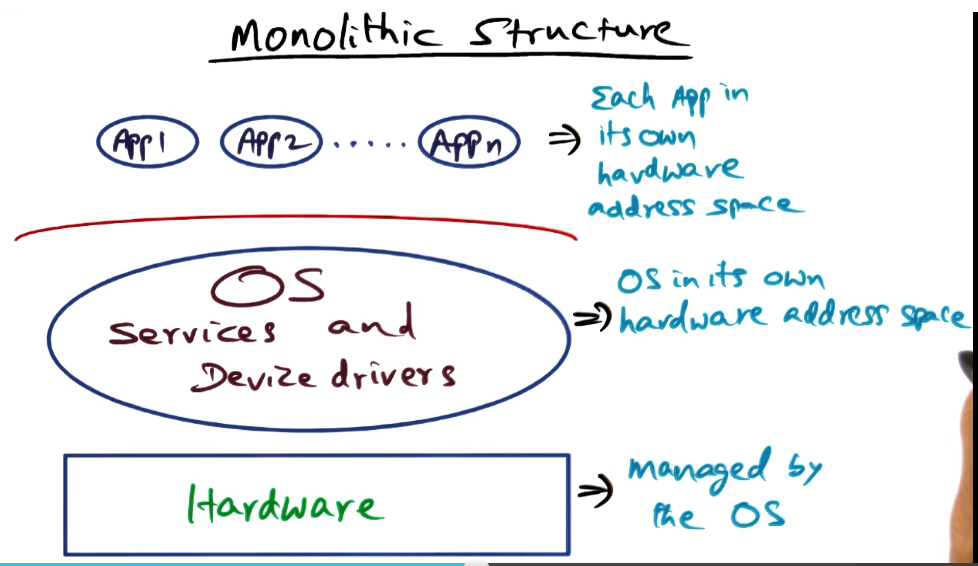 Monolithic Structure
App1 App2 ..... Appn
⇒ Each App in
its own
hardware
address space
OS
Services and
Device drivers
⇒ OS in its own
hardware address space
Hardware
⇒ managed by
the OS